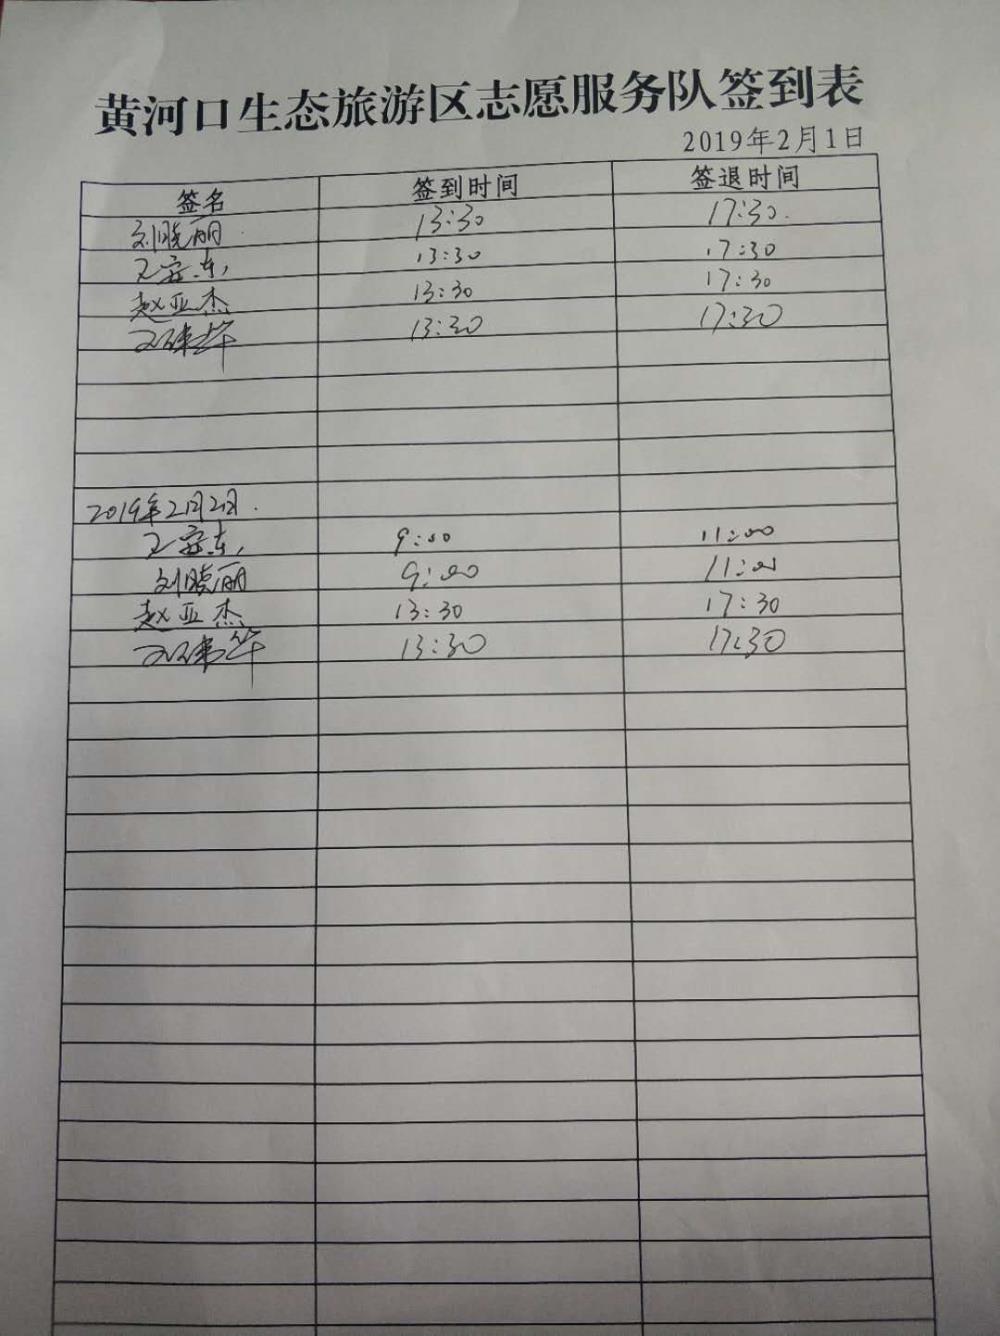 黄河口生态旅游区志愿服务队签到表
2019年2月1日
签名 签到时间 签退时间
刘晓丽 13:30 17:30.
13:30 17:30
赵亚杰 13:30 17:30
13:30 17:30
2019年2月2日.
9:00 11:00
刘晓丽 9:00 11:00
赵亚杰 13:30 17:30
13:30 17:30